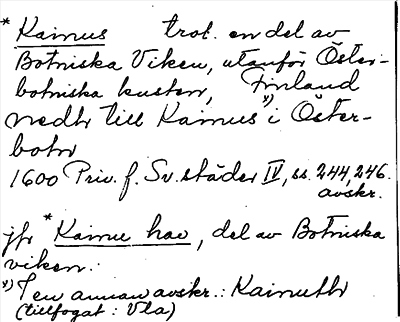 * Kainus trol. en del av
Botniska Viken, utanför Öster-
botniska kusten, Finland
nedhr till Kainus x) i Öster-
botn
1600 Priv. f. Sv. städer IV, ss. 244, 246.
avskr.
jfr * Kainu hav, del av Botniska
viken.
x) I en annan avskr.: Kainuthr
(tillfogat: Vla)